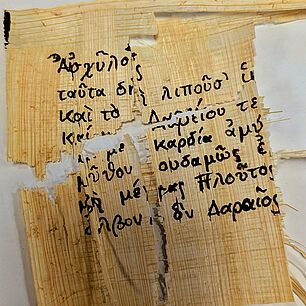 Ἀσχῦλος
ταῦτα δὴ λιποῦσ' ἱ
καὶ τὸ Δαρείου τε
καί με καρδία ἀμύ
οὐδαμῶς ἐ
μὴ μέγας Πλοῦτος
ὄλβον, ὃν Δαρεῖος